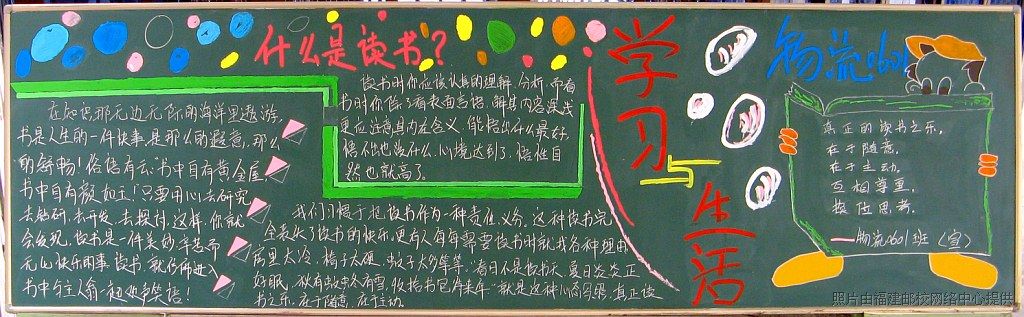 什么是读书?
在知识那无边无际的海洋里遨游,
书是人生的一件快事,是那么的惬意,那么
的舒畅!俗语有云:"书中自有黄金屋,
书中自有颜如玉!只要用心去研究
去钻研、去开发、去探讨,这样,你就
会发现,读书是一件美妙
快乐的事
读书时你应该认真的理解、分析,而看
书时你除了看表面言语,解其内容深浅
更应注意其内在含义,能悟出什么最好,
悟不出也没什么,心境达到了,悟性自
然也就高了。
我们习惯于把读书作为一种责任、义务。这种读书完
全丧失了读书的快乐,更有人每年需要读书时就找各种理由
房里太冷,椅子太硬,蚊子太多等等。"春日不是读书天,夏日炎炎正
好眠,秋有蚊虫冬有雪,收拾书包待来年"就是这种心态写照,真正读
书之乐,在于随意,在于主动。
学习与生活
物流0601
真正的读书之乐,
在于随意,
在于主动。
互相尊重,
换位思考。
——物流0601班(宣)
照片由福建邮校网络中心提供